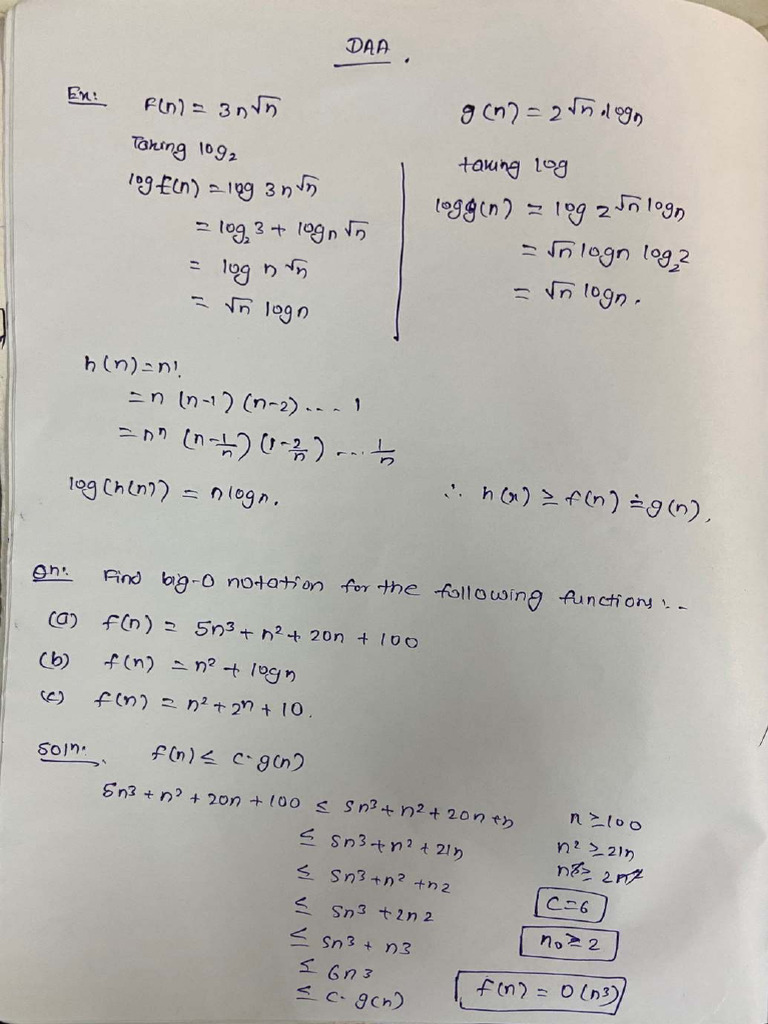 DAA.
Ex: f(n) = 3n√n
Taking log₂
log f(n) = log 3n√n
= log₂3 + logn √n
= log n √n
= √n logn
g(n) = 2√n.logn
taking log
log g(n) = log 2√n logn
= √n logn log₂2
= √n logn.
h(n) = n!
= n (n-1) (n-2) .... 1
= nⁿ (n-1/n) (1-2/n) .... 1/n
log(h(n)) = nlogn.
∴ h(n) ≥ f(n) ≐ g(n),
Qn: Find big-O notation for the following functions:-
(a) f(n) = 5n³ + n² + 20n + 100
(b) f(n) = n² + logn
(c) f(n) = n² + 2ⁿ + 10.
Soln. f(n) ≤ c·g(n)
5n³ + n² + 20n + 100 ≤ 5n³ + n² + 20n + n n ≥ 100
≤ 5n³ + n² + 21n n² ≥ 21n
≤ 5n³ + n² + n2 n³ ≥ 2n²
≤ 5n³ + 2n2 C=6
≤ 5n³ + n3 n₀ ≥ 2
≤ 6n3
≤ c. g(n) f(n) = O(n³)